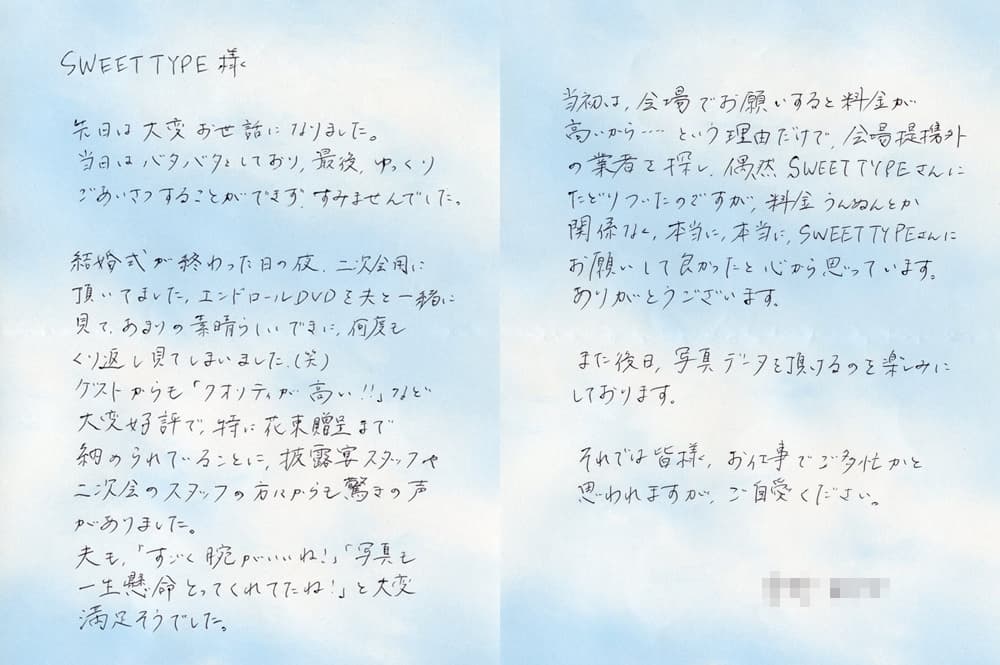 SWEET TYPE 様
先日は大変お世話になりました。
当日はバタバタとしており、最後、ゆっくり
ごあいさつすることができず、すみませんでした。
結婚式が終わった日の夜、二次会用に
頂いてました、エンドロールDVDを夫と一緒に
見て、あまりの素晴らしいできに、何度も
くり返し見てしまいました。(笑)
ゲストからも「クオリティが高い!!」など
大変好評で、特に花束贈呈まで
納められていることに、披露宴スタッフや
二次会のスタッフの方にからも驚きの声
がありました。
夫も、「すごく腕がいいね!」「写真も
一生懸命とってくれてたね!」と大変
満足そうでした。
当初は、会場でお願いすると料金が
高いから…… という理由だけで、会場提携外
の業者を探し、偶然 SWEET TYPEさんに
たどりついたのですが、料金うんぬんとか
関係なく、本当に、本当に、SWEET TYPEさんに
お願いして良かったと心から思っています。
ありがとうございます。
また後日、写真データを頂けるのを楽しみに
しております。
それでは皆様、お仕事でご多忙かと
思われますが、ご自愛ください。